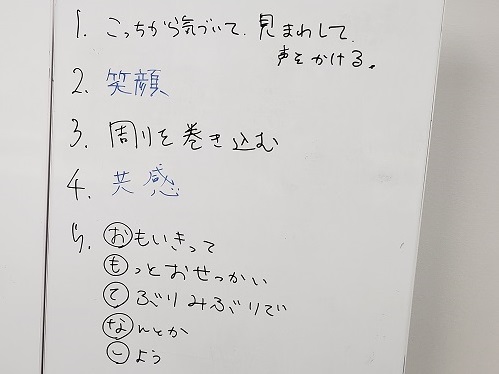 1. こっちから気づいて、見まわして、
声をかける。
2. 笑顔
3. 周りを巻き込む
4. 共感
5. おもいきって
もっとおせっかい
てぶりみぶりで
なんとか
しよう